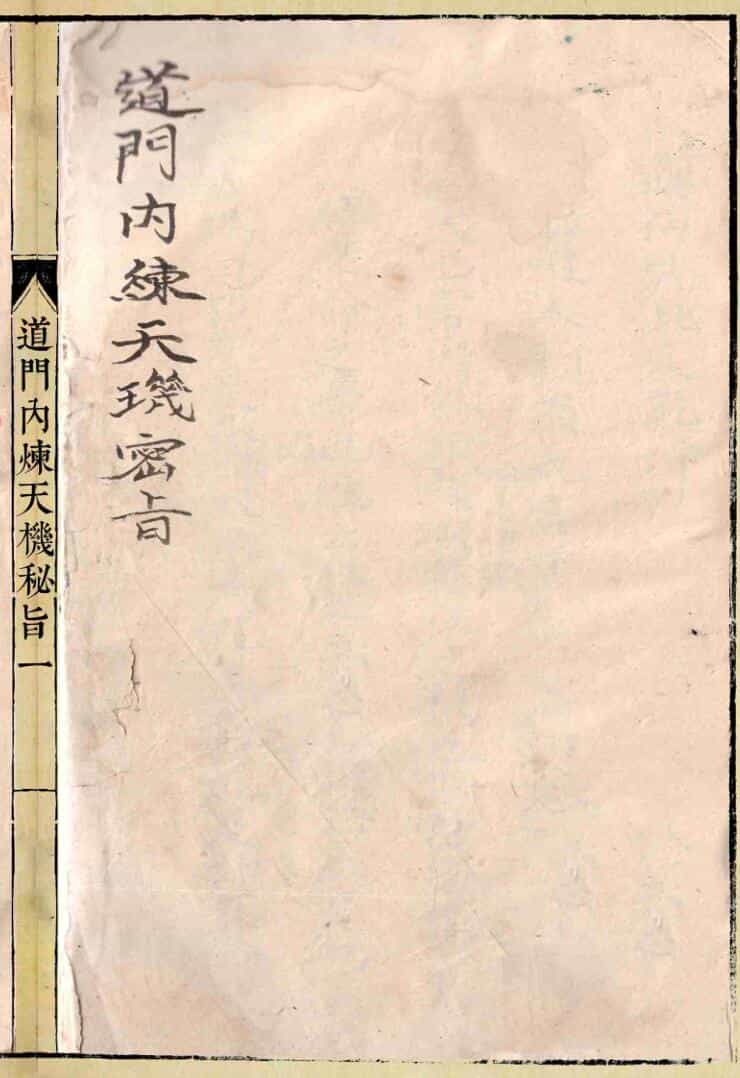 道門内練天璣密旨
道門內煉天機秘旨一